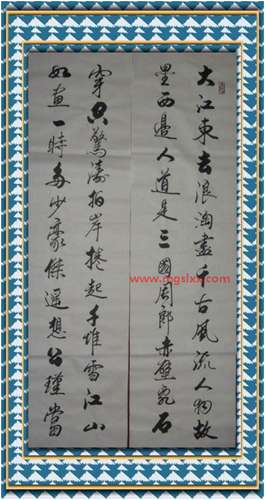 大江東去浪淘盡千古風流人物故
壘西邊人道是三國周郎赤壁亂石
穿空驚濤拍岸捲起千堆雪江山
如畫一時多少豪傑遙想公瑾當